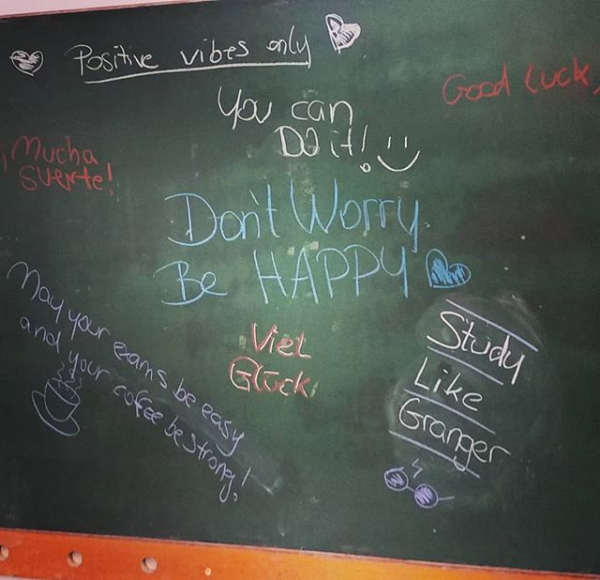 Positive vibes only
Good Luck,
You can
Do it!
¡Mucha
suerte!
Don't Worry
Be HAPPY
May your exams be easy
and your coffee be strong!
Viel
Glück
Study
Like
Granger